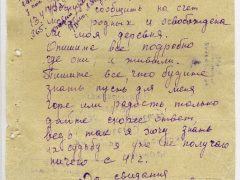 сообщить на счет
родных и освобождена
ли моя деревня.
Опишите все, подробно
где они и живыли.
Пишите все, что будите
знать пусть для меня
горе или радость, только
дайте скорее ответ,
ведь так я хочу знать
их судьбу я уже не получаю
ничего с 41 г.
До свидания